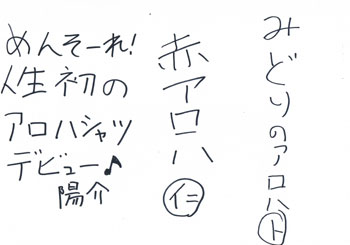 みどりのアロハ
ト
赤アロハ
仁
めんそーれ!
人生初の
アロハシャツ
デビュー♪
陽介